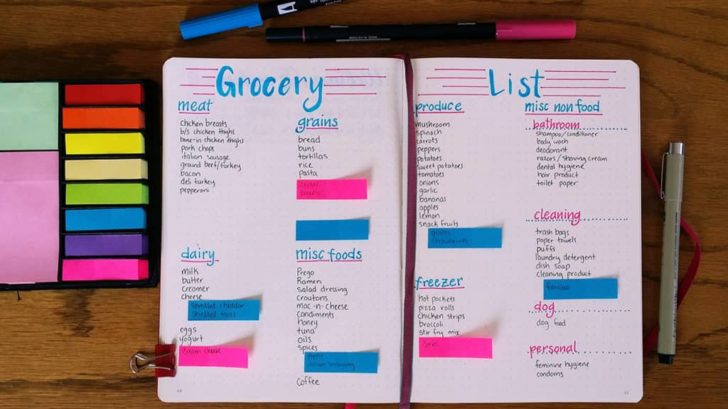 Grocery List
meat
chicken breasts
b/s chicken thighs
bone-in chicken thighs
pork chops
italian sausage
ground beef/turkey
bacon
deli turkey
pepperoni
grains
bread
buns
tortillas
rice
pasta
dairy
milk
butter
creamer
cheese
shredded cheddar
eggs
yogurt
cheese
misc foods
Prego
Ramen
salad dressing
croutons
mac-n-cheese
condiments
honey
tuna
oils
spices
coffee
produce
mushroom
spinach
carrots
peppers
potatoes
sweet potatoes
tomatoes
onions
garlic
bananas
apples
lemon
snack fruits
freezer
hot pockets
pizza rolls
chicken strips
broccoli
stir fry mix
misc non food
bathroom
shampoo/conditioner
body wash
deodorant
razors/shaving cream
dental hygiene
hair product
toilet paper
cleaning
trash bags
paper towels
puffs
laundry detergent
dish soap
cleaning product
dog
dog food
personal
feminine hygiene
condoms